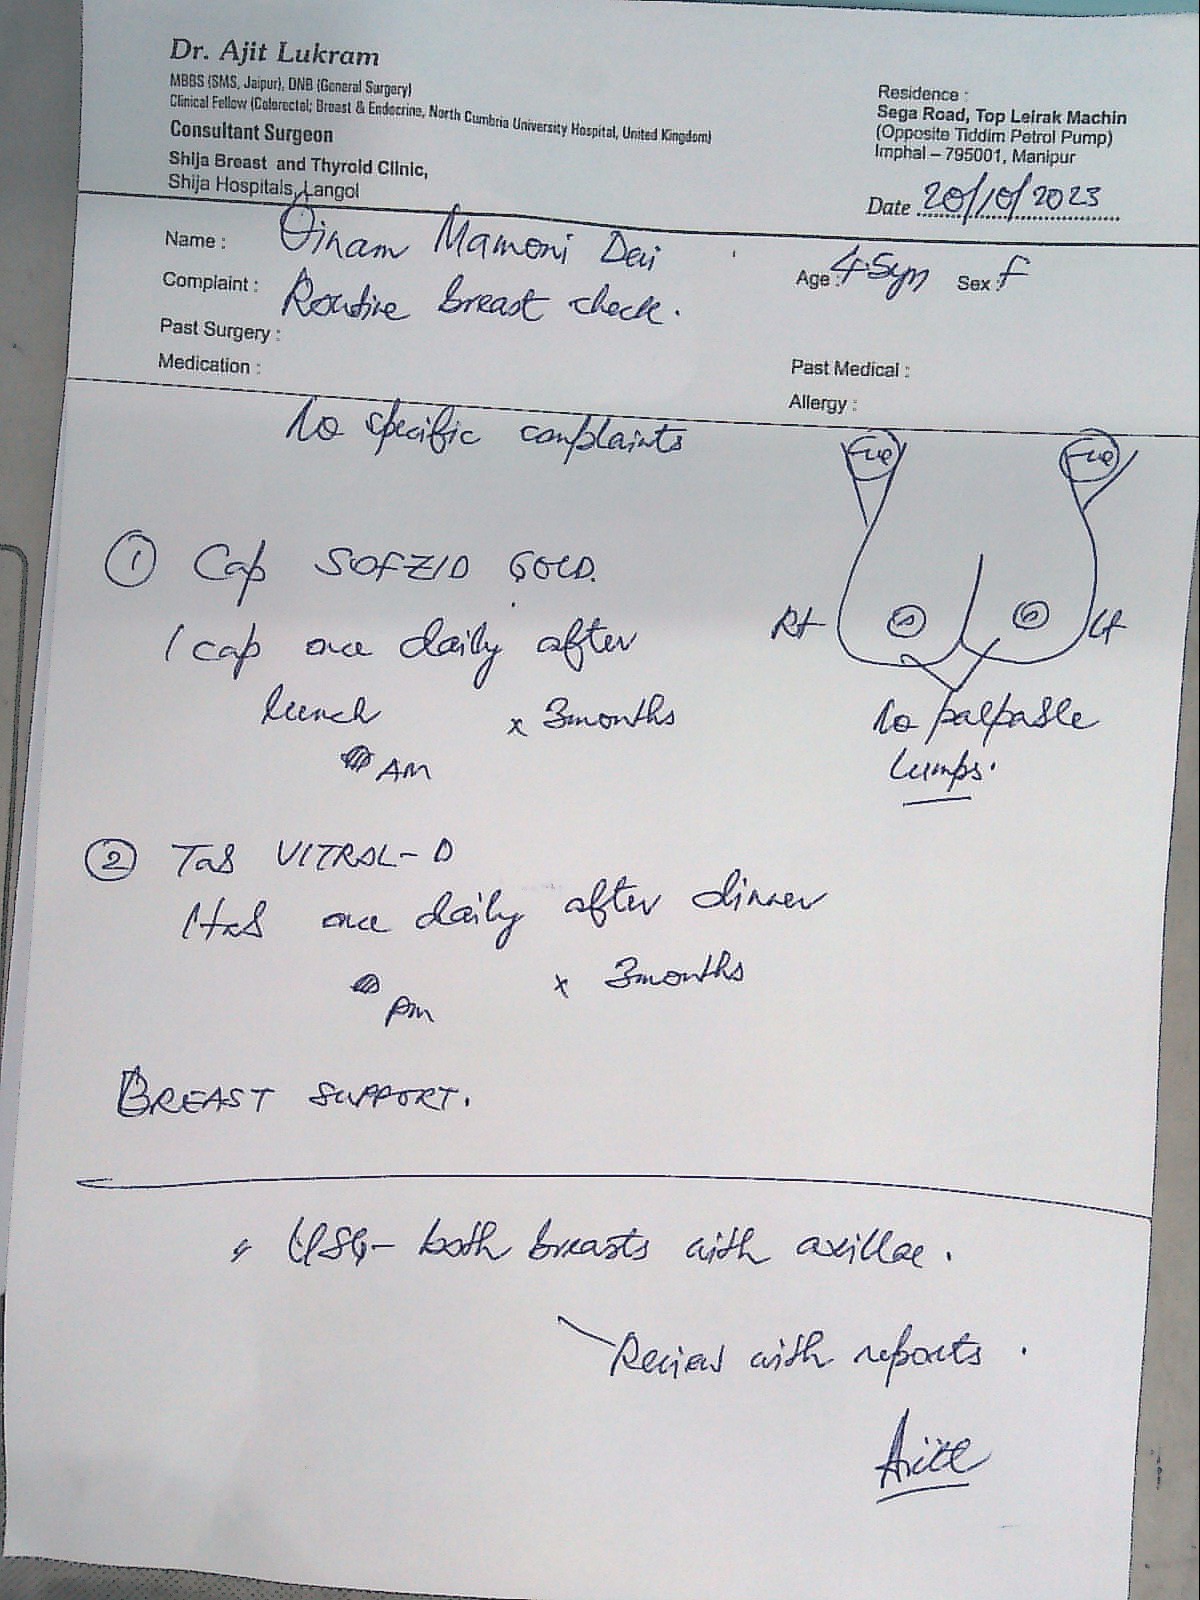 Dr. Ajit Lukram
MBBS (SMS, Jaipur), DNB (General Surgery)
Clinical Fellow (Colorectal; Breast & Endocrine, North Cumbria University Hospital, United Kingdom)
Consultant Surgeon
Shija Breast and Thyroid Clinic,
Shija Hospitals, Langol
Residence :
Sega Road, Top Leirak Machin
(Opposite Tiddim Petrol Pump)
Imphal – 795001, Manipur
Date 20/10/2023
Name : Oinam Mamoni Devi
Age : 45yrs Sex : F
Complaint : Routine breast check.
Past Surgery :
Medication :
Past Medical :
Allergy :
No specific complaints
Rt Lt
No palpable
lumps.
① Cap SOFZID GOLD.
1 cap once daily after
lunch x 3months
AM
② Tab VITROL-D
1tab once daily after dinner
x 3months
PM
BREAST SUPPORT.
USG- both breasts with axillae.
Review with reports.